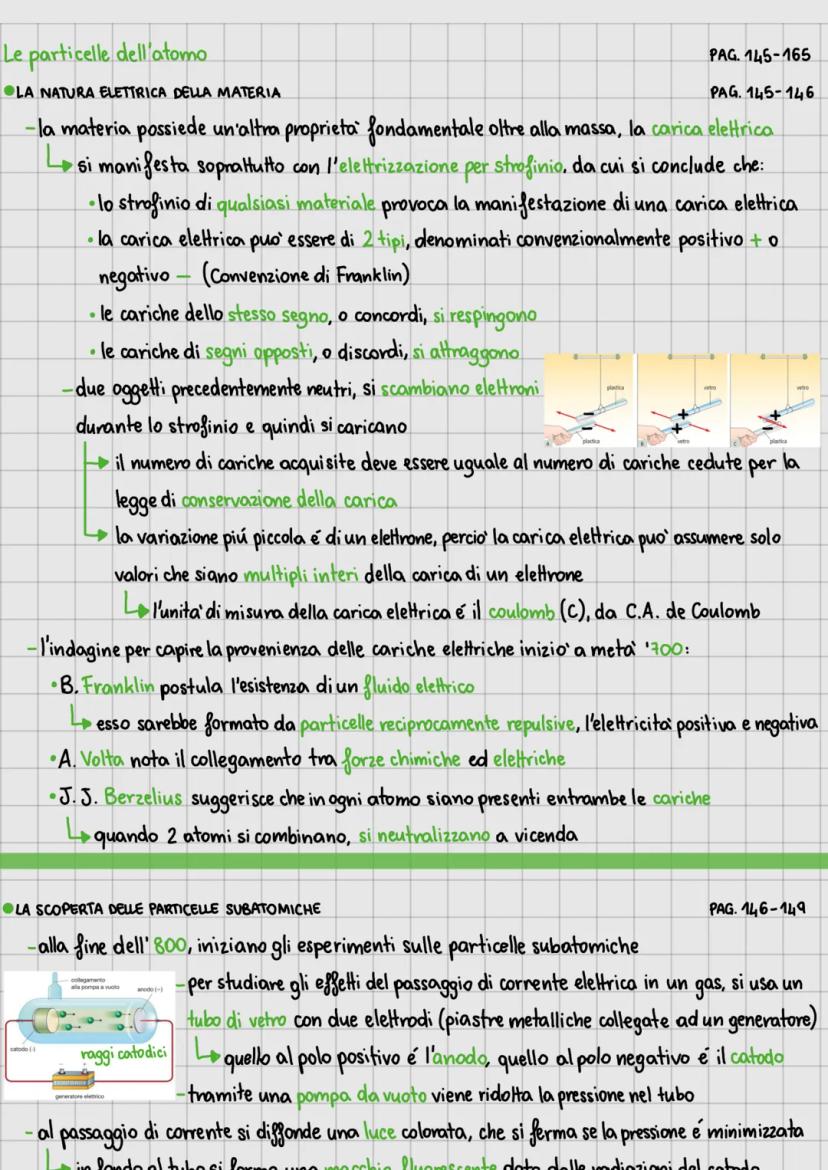 Le particelle dell'atomo PAG. 145-165
•LA NATURA ELETTRICA DELLA MATERIA PAG. 145-146
-la materia possiede un'altra proprietà fondamentale oltre alla massa, la carica elettrica
si manifesta soprattutto con l'elettrizzazione per strofinio, da cui si conclude che:
•lo strofinio di qualsiasi materiale provoca la manifestazione di una carica elettrica
•la carica elettrica può essere di 2 tipi, denominati convenzionalmente positivo + o
negativo - (Convenzione di Franklin)
•le cariche dello stesso segno, o concordi, si respingono
•le cariche di segni opposti, o discordi, si attraggono
plastica vetro vetro
-due oggetti precedentemente neutri, si scambiano elettroni
durante lo strofinio e quindi si caricano
A plastica B vetro C plastica
il numero di cariche acquisite deve essere uguale al numero di cariche cedute per la
legge di conservazione della carica
la variazione piú piccola é di un elettrone, perciò la carica elettrica può assumere solo
valori che siano multipli interi della carica di un elettrone
l'unità di misura della carica elettrica é il coulomb (C), da C.A. de Coulomb
-l'indagine per capire la provenienza delle cariche elettriche iniziò a metà '700:
•B. Franklin postula l'esistenza di un fluido elettrico
esso sarebbe formato da particelle reciprocamente repulsive, l'elettricità positiva e negativa
•A. Volta nota il collegamento tra forze chimiche ed elettriche
•J. J. Berzelius suggerisce che in ogni atomo siano presenti entrambe le cariche
quando 2 atomi si combinano, si neutralizzano a vicenda
•LA SCOPERTA DELLE PARTICELLE SUBATOMICHE PAG. 146-149
-alla fine dell'800, iniziano gli esperimenti sulle particelle subatomiche
collegamento
alla pompa a vuoto
anodo (-)
catodo (-)
raggi catodici
generatore elettrico
-per studiare gli effetti del passaggio di corrente elettrica in un gas, si usa un
tubo di vetro con due elettrodi (piastre metalliche collegate ad un generatore)
quello al polo positivo é l'anodo, quello al polo negativo é il catodo
-tramite una pompa da vuoto viene ridotta la pressione nel tubo
-al passaggio di corrente si diffonde una luce colorata, che si ferma se la pressione é minimizzata
in fondo al tubo si forma una macchia fluorescente data dalle radiazioni del catodo